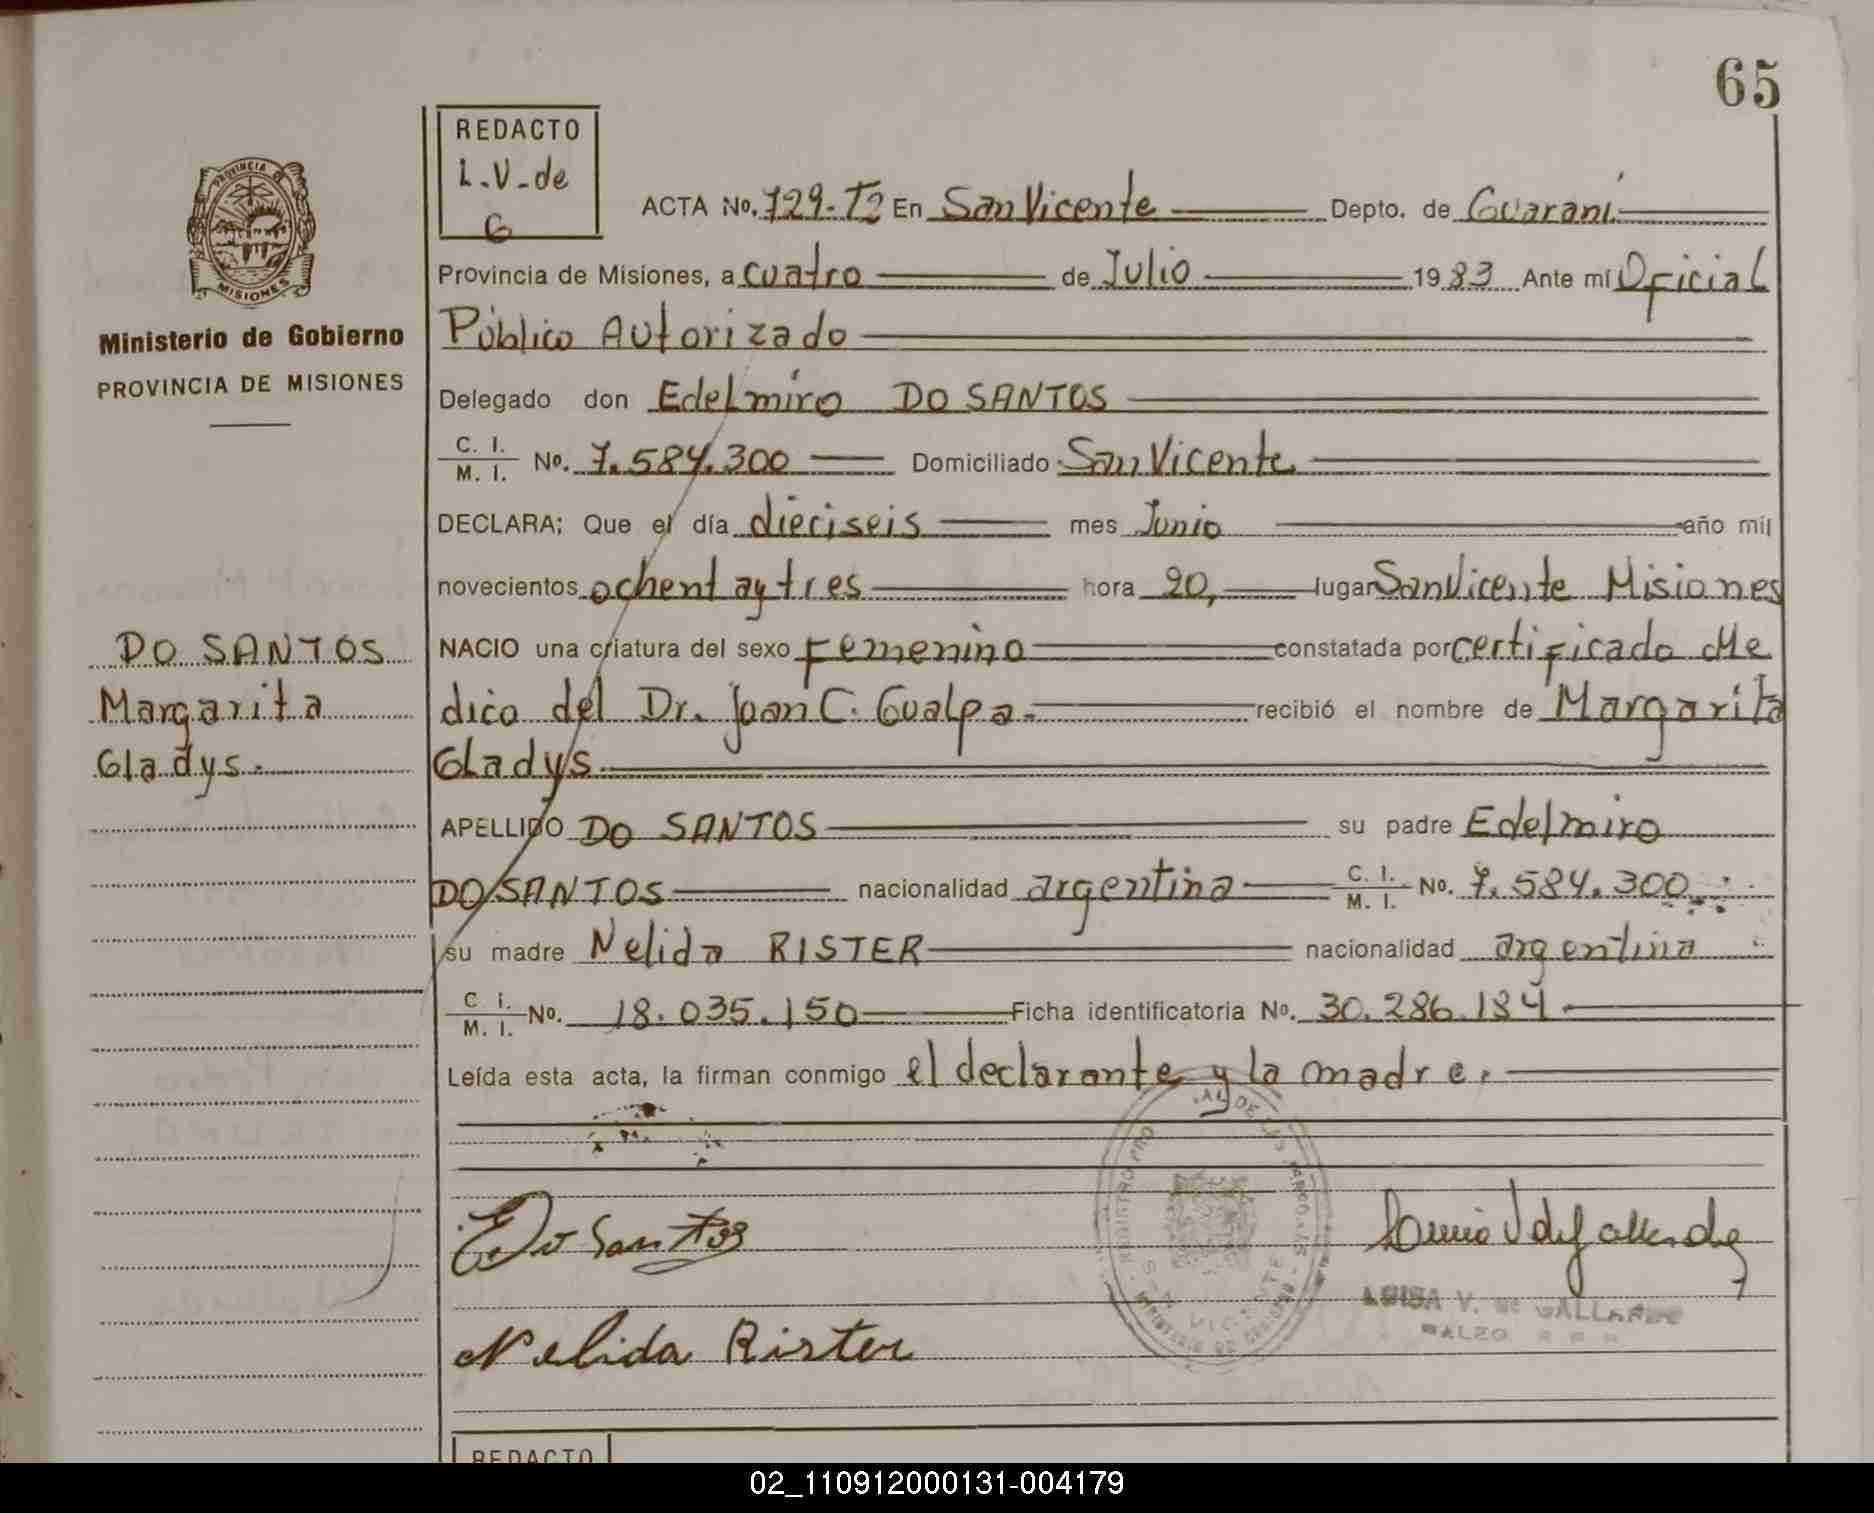 65
REDACTO
L.V. de
G
PROVINCIA
MISIONES
Ministerio de Gobierno
PROVINCIA DE MISIONES
ACTA No. 729-T2 En San Vicente Depto. de Guaraní
Provincia de Misiones, a cuatro de Julio 1983 Ante mí Oficial
Público Autorizado
Delegado don Edelmiro DO SANTOS
C. I. / M. I. No. 7.584.300 Domiciliado San Vicente
DECLARA; Que el día dieciseis mes Junio año mil
novecientos ochentaytres hora 20, lugar San Vicente Misiones
NACIO una criatura del sexo Femenino constatada por certificado Me
dico del Dr. Juan C. Gualpa. recibió el nombre de Margarita
Gladys.
DO SANTOS
Margarita
Gladys.
APELLIDO DO SANTOS su padre Edelmiro
DO SANTOS nacionalidad argentina C. I. / M. I. No. 7.584.300
su madre Nelida RISTER nacionalidad argentina
C. i. / M. I. No. 18.035.150 Ficha identificatoria No. 30.286.184
Leída esta acta, la firman conmigo el declarante y la madre.
E Do Santos
Nelida Rister
LUISA V. DE GALLARDO
SAN VICENTE
REDACTO
02_110912000131-004179